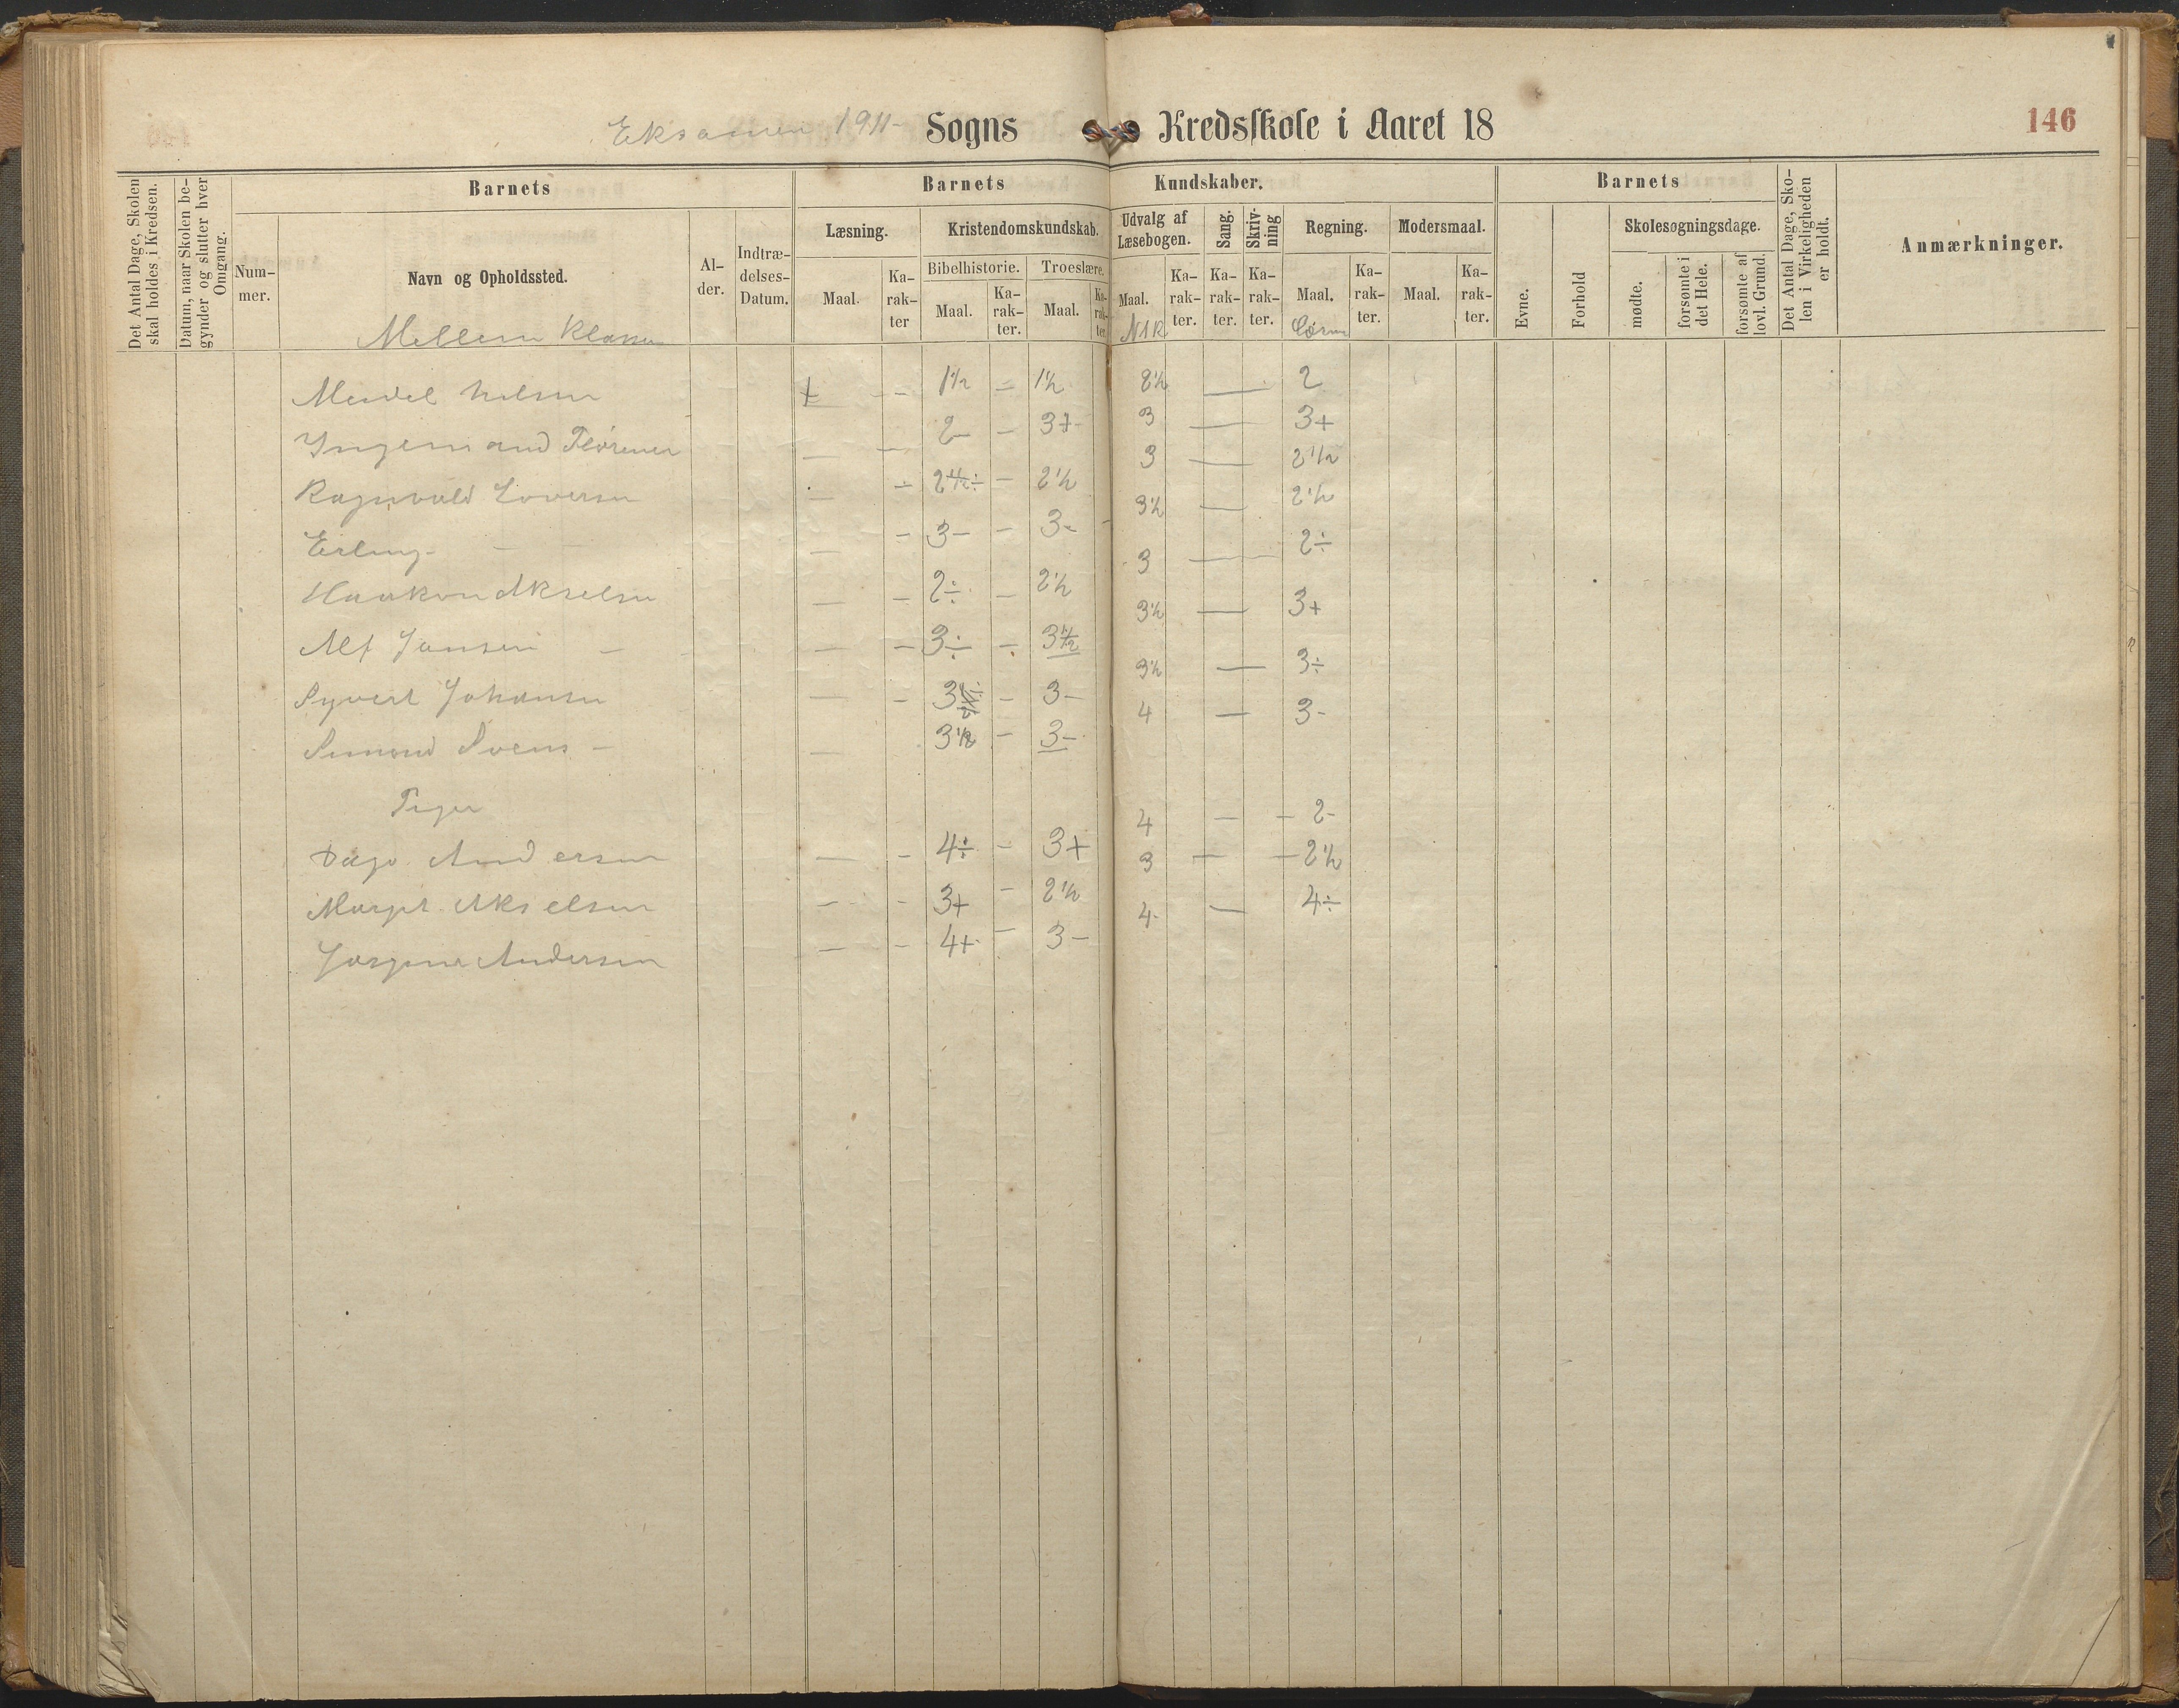 Eksamen 1911- Sogns Kredsskole i Aaret 18
146
Det Antal Dage, Skolen skal holdes i Kredsen.
Datum, naar Skolen begynder og slutter hver Omgang.
Barnets
Nummer.
Navn og Opholdssted.
Alder.
Indtrædelses-Datum.
Barnets Kundskaber.
Læsning.
Maal.
Karakter
Kristendomskundskab.
Bibelhistorie.
Maal.
Karakter.
Troeslære.
Maal.
Karakter.
Udvalg af Læsebogen.
Maal.
Karakter.
Sang.
Karakter.
Skrivning
Karakter.
Regning.
Maal.
Karakter.
Modersmaal.
Maal.
Karakter.
Barnets
Evne.
Forhold
Skolesøgningsdage.
mødte.
forsømte i det Hele.
forsømte af lovl. Grund.
Det Antal Dage, Skolen i Virkeligheden er holdt.
Anmærkninger.
Mellem Klassen
Nilsen + - - 1½ - 1½ 2½ — 2
2- - 3+- 3 — 3+
Ragnvald — - 2½÷ - 2½ 3 — 2½
Erling - - — - 3- - 3- 3½ — 2½
Haakon Akselsen — - 2÷ - 2½ 3 — 2÷
Alf Jansen — - 3÷ - 3½ 3½ — 3+
Syvert Johansen — - 3½ - 3- 3½ — 3÷
— 3½ - 3- 4 — 3-
Piger
Andersen — - 4÷ - 3+ 4 — - 2-
Margit Akselsen — - 3+ - 2½ 3 — - 2½
Andersen — - 4+ - 3- 4- — 4÷